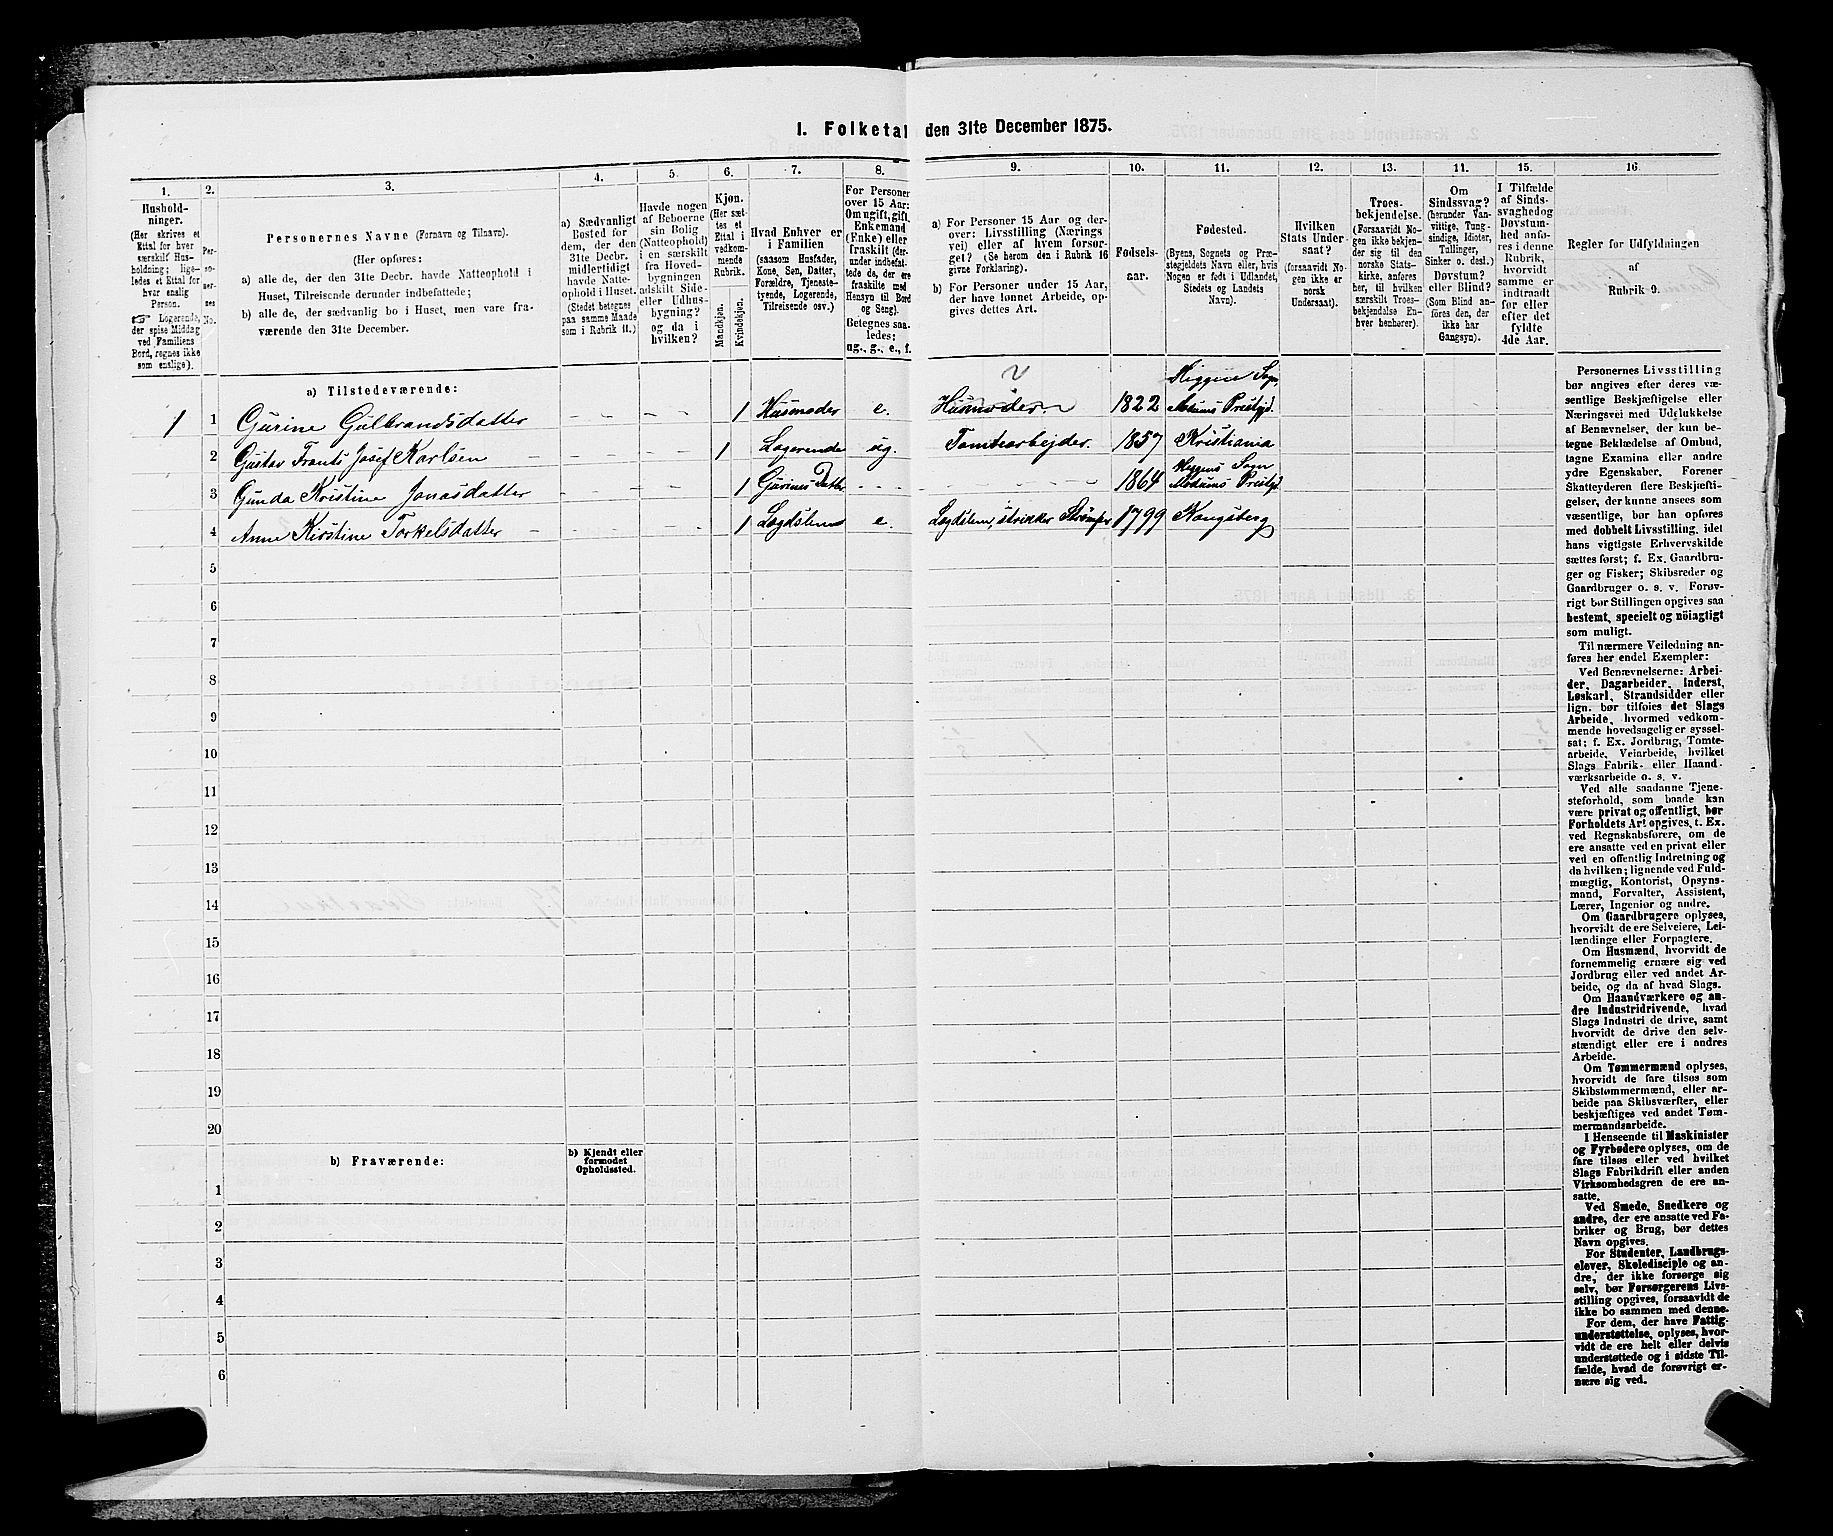 1. Folketal den 31te December 1875.
1. 2. 3. 4. 5. 6. 7. 8. 9. 10. 11. 12. 13. 14. 15. 16
Hushold-
ninger.
(Her skrives et
Ettal for hver
særskilt Hus-
holdning; lige-
ledes et Ettal for
hver enslig
Person.
☞ Logerende,
der spise Middag
ved Familiens
Bord, regnes ikke
som enslige).
Per-
so-
ner-
nes
No.
Personernes Navne (Fornavn og Tilnavn).
(Her opføres:
a) alle de, der den 31te Decbr. havde Natteophold i
Huset, Tilreisende derunder indbefattede;
b) alle de, der sædvanlig bo i Huset, men vare fra-
værende den 31te December.
a) Sædvanligt
Bosted for
dem, der den
31te Decbr.
midlertidigt
havde Natte-
ophold i Huset.
(Stedet betegnes
paa samme Maade
som i Rubrik 11.)
Havde nogen
af Beboerne
sin Bolig
(Natteophold)
i en særskilt
fra Hoved-
bygningen
adskilt Side-
eller Udhus-
bygning?
og da i
hvilken?
Kjøn.
(Her sæt-
tes et
Ettal i
vedkom-
mende
Rubrik.
Mandkjøn.
Kvindekjøn.
Hvad Enhver er
i Familien
(saasom Husfader,
Kone, Søn, Datter,
Forældre, Tjeneste-
tyende, Logerende,
Tilreisende osv.)
For Personer
over 15 Aar:
Om ugift, gift,
Enkemand
(Enke) eller
fraskilt (der-
under indbefat-
tede de, der ere
fraskilte med
Hensyn til Bord
og Seng).
Betegnes saa-
ledes:
ug., g., e., f.
a) For Personer 15 Aar og der-
over: Livsstilling (Nærings
vei) eller af hvem forsør-
get? (Se herom den i Rubrik 16
givne Forklaring).
b) For Personer under 15 Aar,
der have lønnet Arbeide, op-
gives dettes Art.
Fødsels-
aar.
Fødested.
(Byens, Sognets og Præ-
stegjeldets Navn eller, hvis
Nogen er født i Udlandet,
Stedets og Landets
Navn).
Hvilken
Stats Under-
saat?
(forsaavidt No-
gen ikke er
norsk
Undersaat).
Troes-
bekjendelse.
(Forsaavidt Nogen
ikke bekjen-
der sig til den
norske Stats-
kirke, anføres
her, til hvilken
særskilt Troes-
bekjendelse En-
hver henhører).
Om
Sindssvag?
(herunder Van-
vittige, Tung-
sindige, Idioter,
Tullinger,
Sinker o. desl.)
Døvstum?
eller Blind?
(Som Blind an-
føres den, der
ikke har
Gangsyn).
I Tilfælde
af Sinds-
svaghed og
Døvstum-
hed anfø-
res i denne
Rubrik,
hvorvidt
samme er
indtraadt
før eller
efter det
fyldte
4de Aar.
Regler for Udfyldningen
af
Rubrik 9.
a) Tilstedeværende:
1 1 Gurine Gulbrandsdatter - - - - 1 Husmoder e. Husmoder 1822 Higgen Sogn, Modums Prestgd.
2 Gustav Frants Josef Karlsen - - - 1 Logerende ug. Tomtearbejder. 1857 Kristiania
3 Gunda Kristine Jonasdatter - - - 1 Gurines Datter - - - 1864 Heggens Sogn Modums Prestgd.
4 Anne Kirstine Torkelsdatter - - - 1 Lægdslem e. Lægdslem, strikker Strømper 1799 Kongsberg
5
6
7
8
9
10
11
12
13
14
15
16
17
18
19
20
b) Fraværende:
b) Kjendt eller
formodet
Opholdssted.
1
2
3
4
5
6
Personernes Livsstilling
bør angives efter deres væ-
sentlige Beskjæftigelse eller
Næringsvei med Udelukkelse
af Benævnelser, der kun be-
tegne Beklædelse af Ombud,
tagne Examina eller andre
ydre Egenskaber. Forener
Skatteyderen flere Beskjæfti-
gelser, der kunne ansees som
væsentlige, bør han opføres
med dobbelt Livsstilling, idet
hans vigtigste Erhvervskilde
sættes først; f. Ex. Gaardbru-
ger og Fisker; Skibsreder og
Gaardbruger o. s. v. Forøv-
rigt bør Stillingen opgives saa
bestemt, specielt og nöiagtigt
som muligt.
Til nærmere Veiledning an-
føres her endel Exempler:
Ved Benævnelserne: Arbei-
der, Dagarbeider, Inderst,
Løskarl, Strandsidder eller
lign. bør tilføies det Slags
Arbeide, hvormed vedkom-
mende hovedsagelig er syssel-
sat; f. Ex. Jordbrug, Tomte-
arbeide, Veiarbeide, hvilket
Slags Fabrik- eller Haand-
værksarbeide o. s. v.
Ved alle saadanne Tjene-
steforhold, som baade kan
være privat og offentligt, bør
Forholdets Art opgives, t. Ex.
ved Regnskabsførere, om de
ere ansatte ved en privat eller
ved en offentlig Indretning og
da hvilken; lignende ved Fuld-
mægtig, Kontorist, Opsyns-
mand, Forvalter, Assistent,
Lærer, Ingeniør og andre.
Om Gaardbrugere oplyses,
hvorvidt de ere Selveiere, Lei-
lændinge eller Forpagtere.
Om Husmænd, hvorvidt de
fornemmelig ernære sig ved
Jordbrug eller ved andet Ar-
beide, og da af hvad Slags.
Om Haandværkere og an-
dre Industridrivende, hvad
Slags Industri de drive, samt
hvorvidt de drive den selv-
stændigt eller ere i andres
Arbeide.
Om Tømmermænd oplyses,
hvorvidt de fare tilsøs som
Skibstømmermænd, eller ar-
beide paa Skibsværfter, eller
beskjæftiges ved andet Tøm-
mermandsarbeide.
I Henseende til Maskinister
og Fyrbødere oplyses, om de
fare tilsøs eller ved hvilket
Slags Fabrikdrift eller anden
Virksomhedsgren de ere an-
satte.
Ved Smede, Snedkere og
andre, der ere ansatte ved Fa-
briker og Brug, bør dettes
Navn opgives.
For Studenter, Landbrugs-
elever, Skoledisciple og an-
dre, der ikke forsørge sig
selv, bør Forsørgerens Livs-
stilling opgives, forsaavidt de
ikke bo sammen med denne.
For dem, der have Fattig-
understøttelse, oplyses, hvor-
vidt de ere helt eller delvis
understøttede og i sidste Til-
fælde, hvad de forøvrigt er-
nære sig ved.